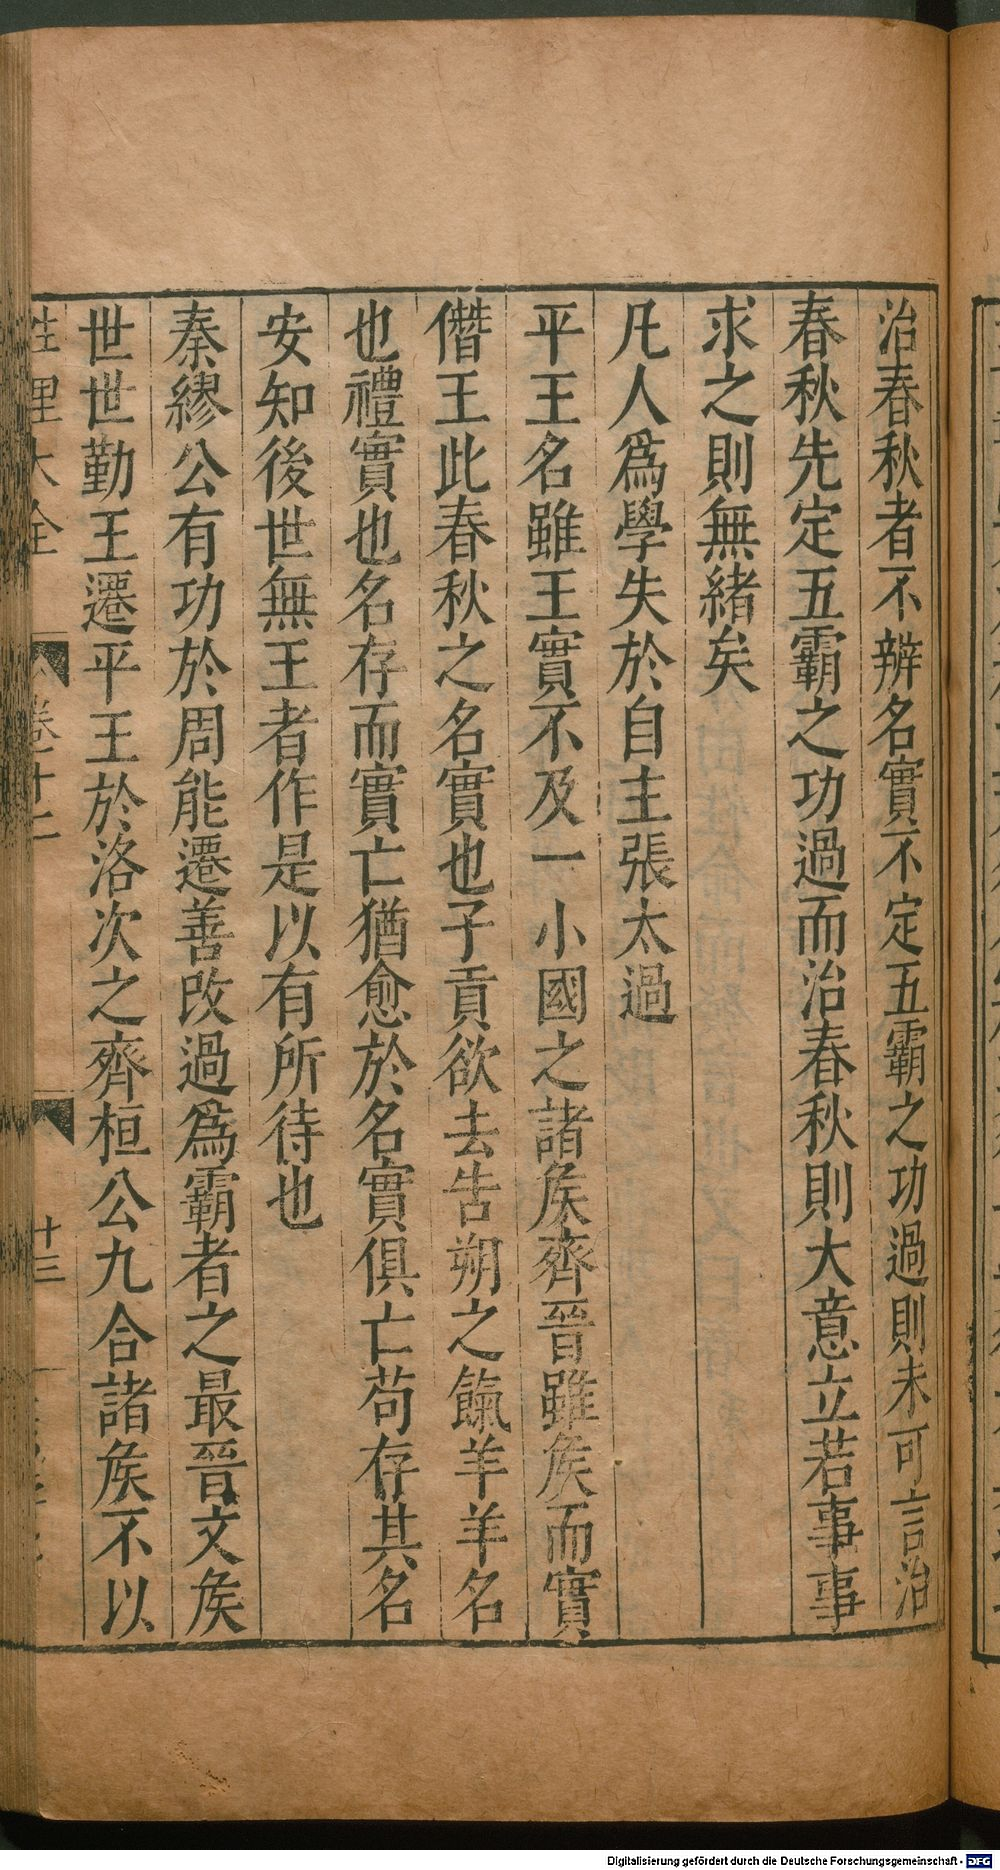 治春秋者不辨名實不定五霸之功過則未可言治
春秋先定五霸之功過而治春秋則大意立若事事
求之則無緒矣
凡人爲學失於自主張太過
平王名雖王實不及一小國之諸矦齊晉雖矦而實
僭王此春秋之名實也子貢欲去告朔之餼羊羊名
也禮實也名存而實亡猶愈於名實俱亡苟存其名
安知後世無王者作是以有所待也
秦繆公有功於周能遷善改過爲霸者之最晉文矦
世世勤王遷平王於洛次之齊桓公九合諸矦不以
性理大全 卷十二 十三
Digitalisierung gefördert durch die Deutsche Forschungsgemeinschaft - DFG